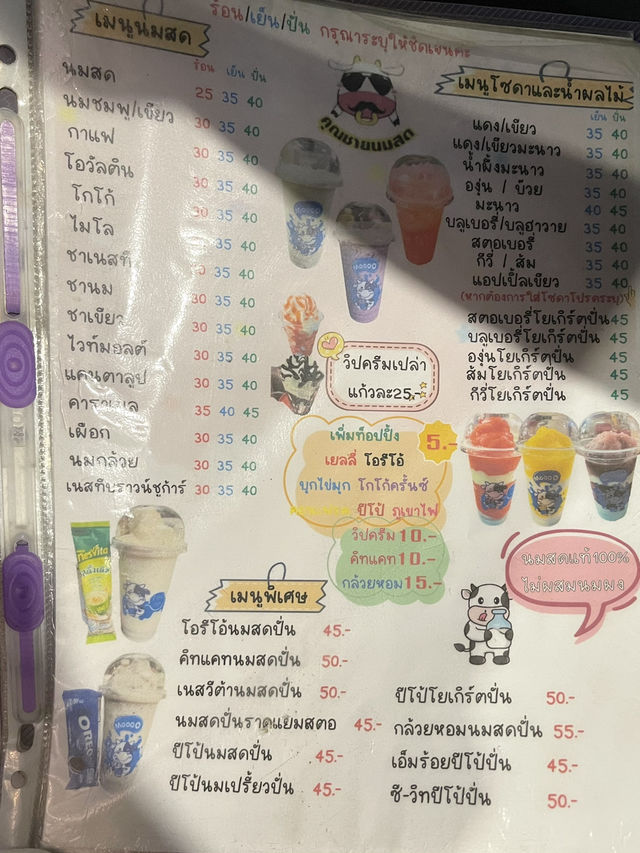 ร้อน/เย็น/ปั่น กรุณาระบุให้ชัดเจนคะ
เมนูนมสด
ร้อน เย็น ปั่น
นมสด 25 35 40
นมชมพู/เขียว 30 35 40
กาแฟ 30 35 40
โอวัลติน 30 35 40
โกโก้ 30 35 40
ไมโล 35 40
ชาเนสที 30 35 40
ชานม 30 35 40
ชาเขียว 30 35 40
ไวท์มอลต์ 30 35 40
แคนตาลูป 30 35 40
คาราเมล 35 40 45
เผือก 30 35 40
นมกล้วย 30 35 40
เนสทีบราวน์ชูก้าร์ 30 35 40
คุณชายนมสด
เมนูโซดาและน้ำผลไม้
เย็น ปั่น
แดง/เขียว 35 40
แดง/เขียวมะนาว 35 40
น้ำผึ้งมะนาว 35 40
องุ่น / บ๊วย 35 40
มะนาว 40 45
บลูเบอรี่/บลูฮาวาย 35 40
สตอเบอรี่ 35 40
กีวี่ / ส้ม 35 40
แอปเปิ้ลเขียว 35 40
(หากต้องการใส่โซดาโปรดระบุ)
สตอเบอรี่โยเกิร์ตปั่น 45
บลูเบอรี่โยเกิร์ตปั่น 45
องุ่นโยเกิร์ตปั่น 45
ส้มโยเกิร์ตปั่น 45
กีวี่โยเกิร์ตปั่น 45
วิปครีมเปล่า
แก้วละ25.-
เพิ่มท็อปปิ้ง 5.-
เยลลี่ โอรีโอ้
บุกไข่มุก โกโก้ครั้นช์
ปีโป้ ภูเขาไฟ
วิปครีม 10.-
คิทแคท 10.-
กล้วยหอม 15.-
นมสดแท้100%
ไม่ผสมนมผง
เมนูพิเศษ
โอรีโอ้นมสดปั่น 45.-
คิทแคทนมสดปั่น 50.-
เนสวีต้านมสดปั่น 50.-
นมสดปั่นราดแยมสตอ 45.-
ปีโป้นมสดปั่น 45.-
ปีโป้นมเปรี้ยวปั่น 45.-
ปีโป้โยเกิร์ตปั่น 50.-
กล้วยหอมนมสดปั่น 55.-
เอ็มร้อยปีโป้ปั่น 45.-
ซี-วิทปีโป้ปั่น 50.-
OREO